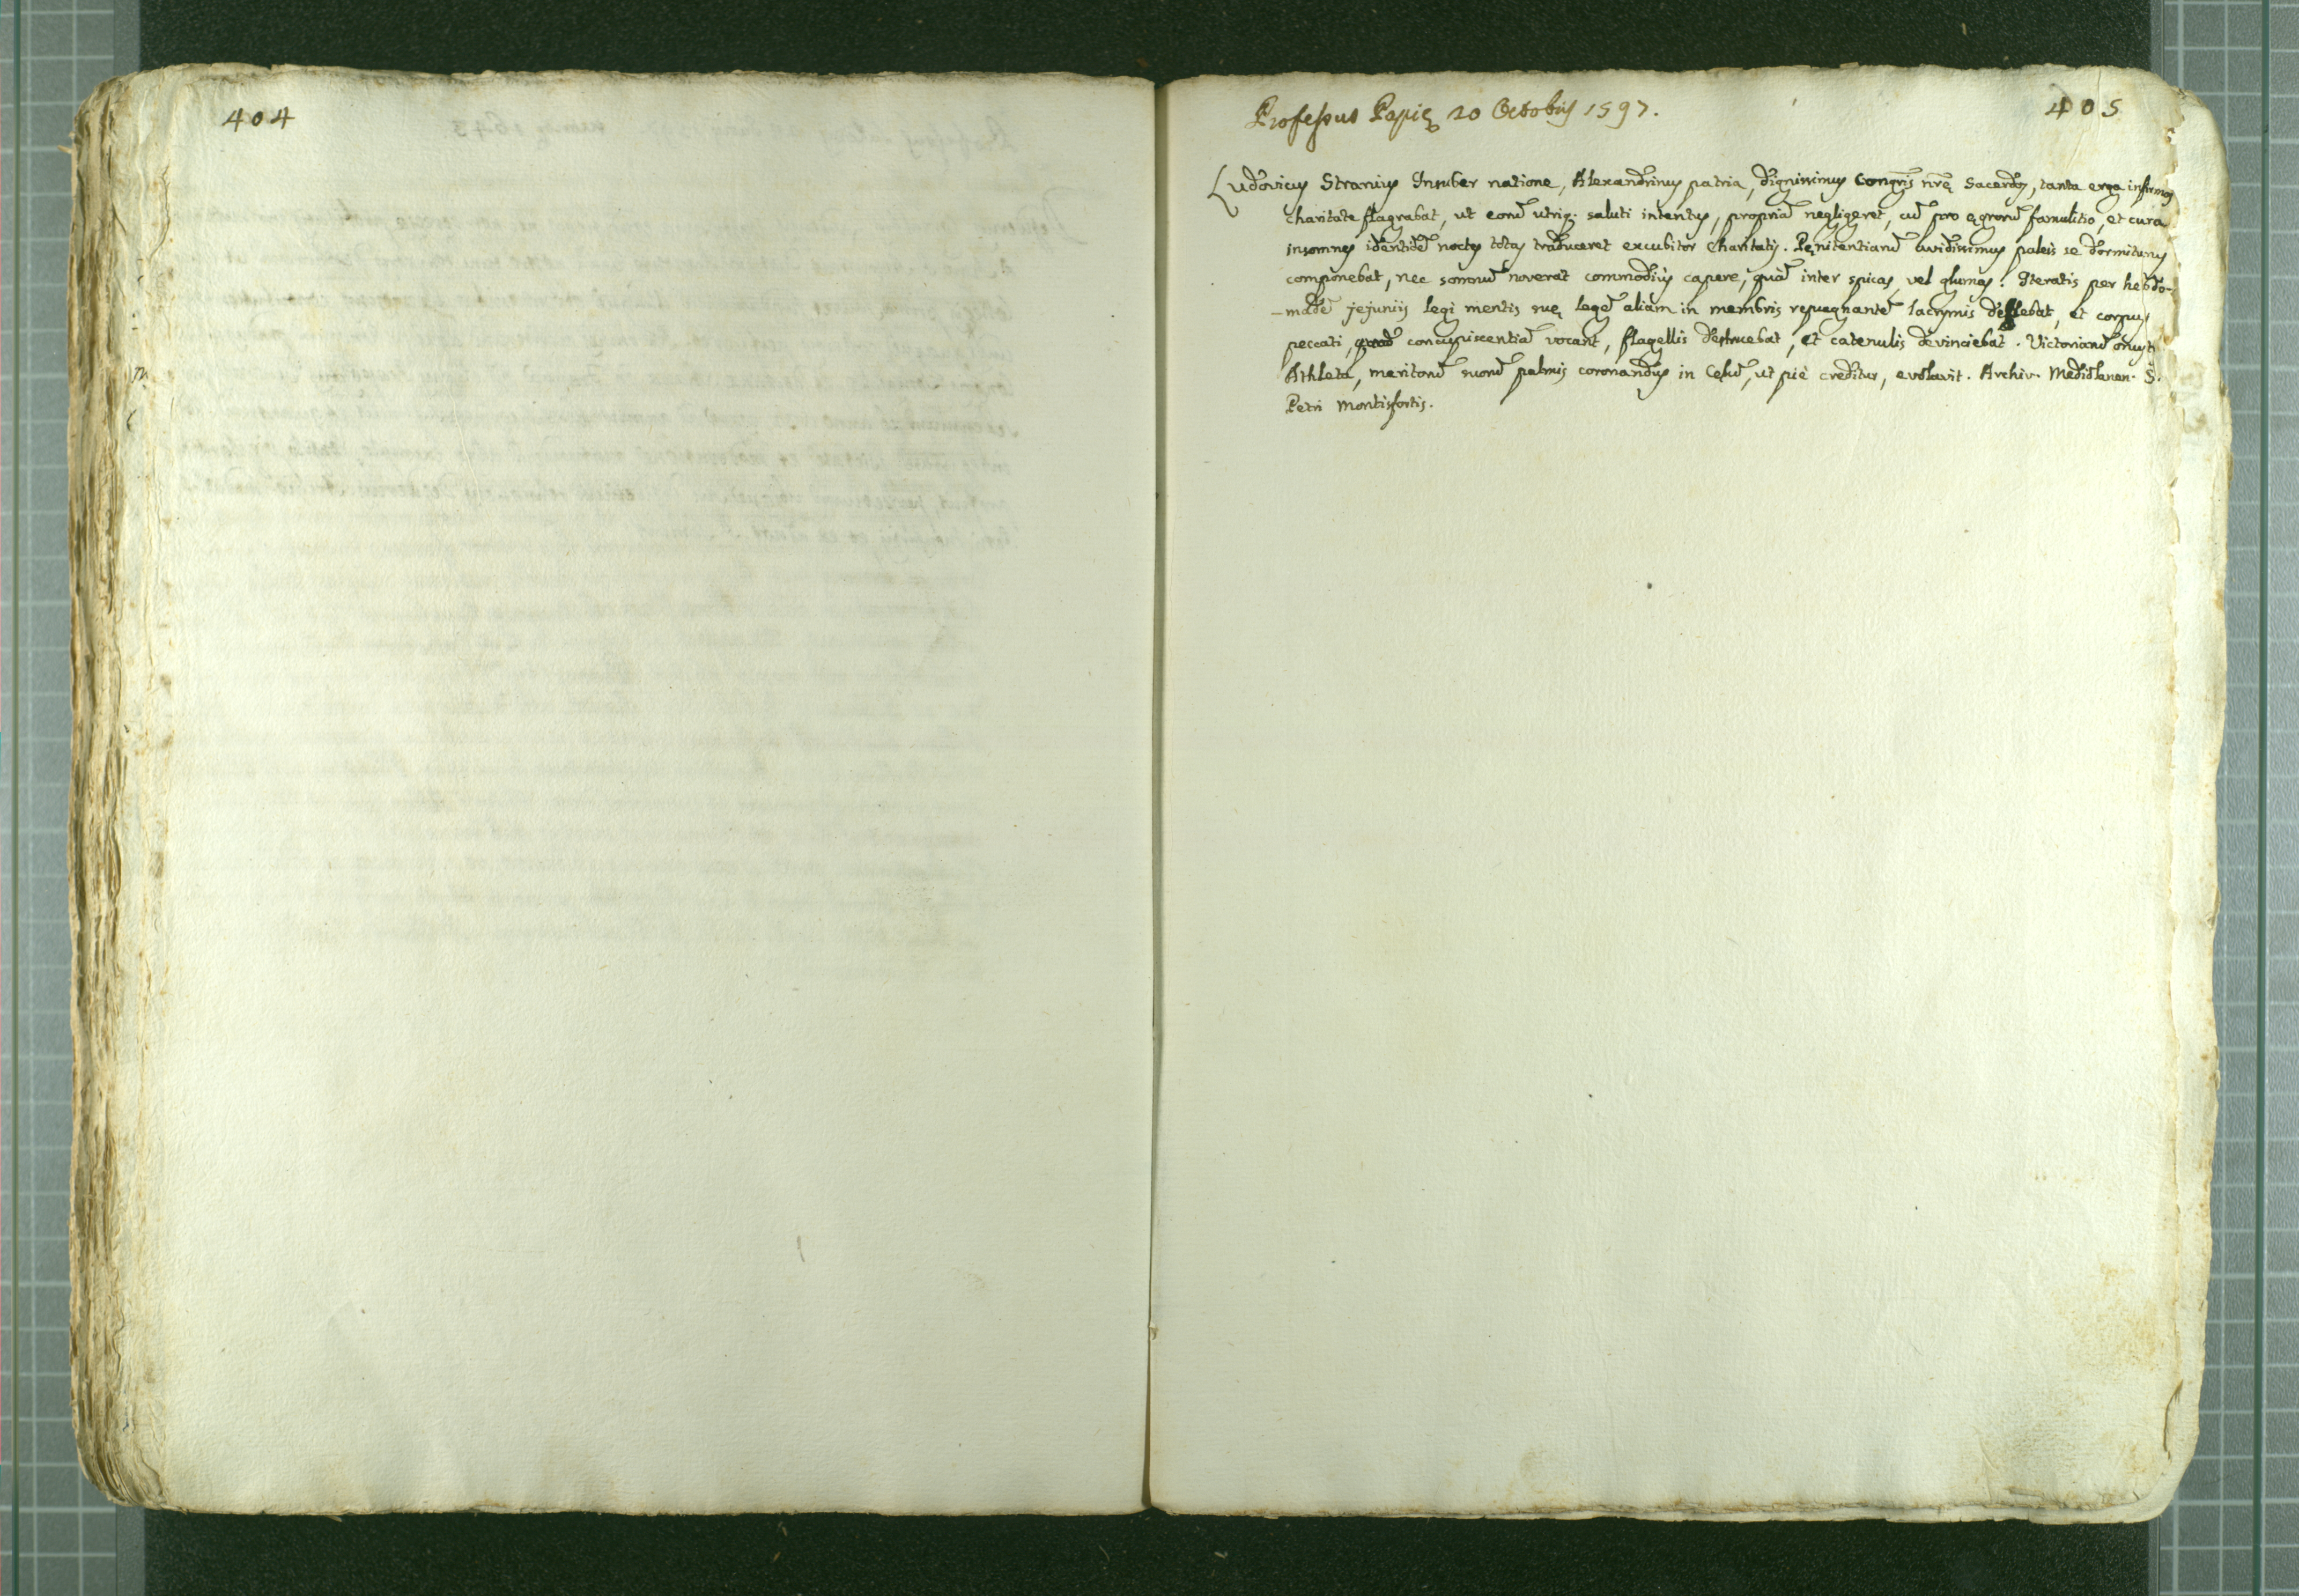 404
405
Professus Papię 20 Octobris 1597.
Ludovicus Stranius Insuber natione, Alexandrinus patria, dignissimus Congris nrę Sacerdos, tanta erga infirmos
charitate flagrabat, ut eorū utriq. saluti intentus, propriā negligeret, cū pro ęgrorū famulitio, et cura
insomnes identidē noctes totas traduceret excubitor Charitatis. Pęnitentiarū avidissimus paleis se dormiturus
componebat, nec somnū noverat commodiùs capere, quā inter spicas, vel glumas. Iteratis per hebdo-
-madē jejuniis legi mentis suę legē aliam in membris repugnantē lacrymis deflebat, et corpus
peccati, quod concupiscentiā vocant, flagellis destruebat, et catenulis devinciebat. Victoriarū onust
Athleta, meritorū suorū palmis coronandus in Cęlū, ut piè creditur, evolavit. Archiv. Mediolanen. S.
Petri Montisfortis.